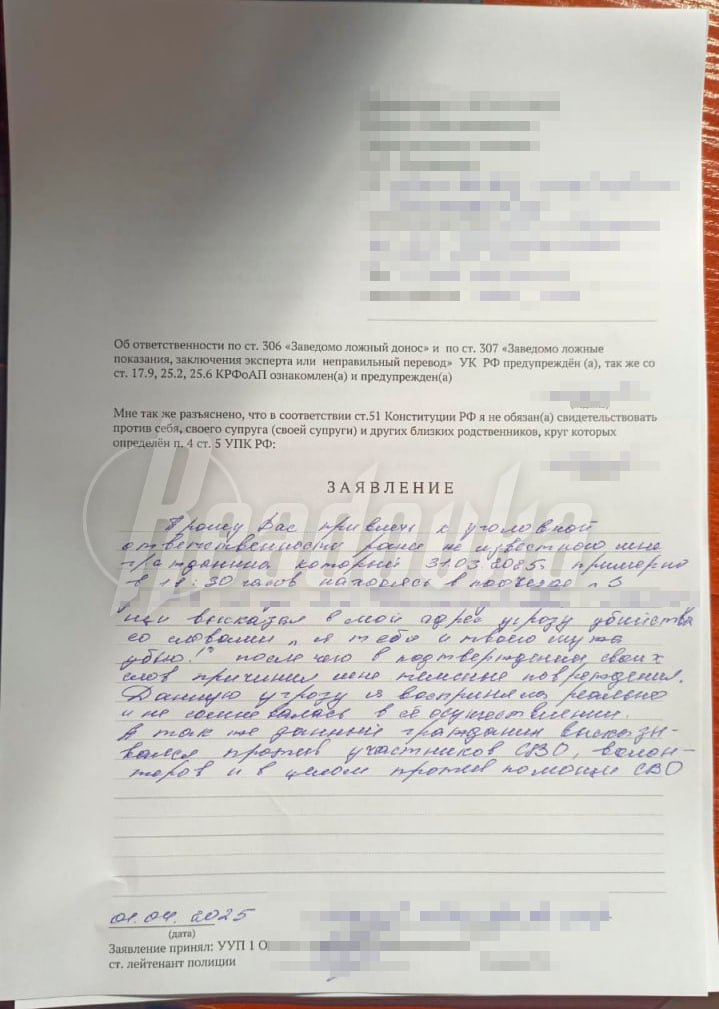 Об ответственности по ст. 306 «Заведомо ложный донос» и по ст. 307 «Заведомо ложные
показания, заключения эксперта или неправильный перевод» УК РФ предупреждён (а), так же со
ст. 17.9, 25.2, 25.6 КРФоАП ознакомлен(а) и предупрежден(а)
Мне так же разъяснено, что в соответствии ст.51 Конституции РФ я не обязан(а) свидетельствовать
против себя, своего супруга (своей супруги) и других близких родственников, круг которых
определён п. 4 ст. 5 УПК РФ:
Readovka
ЗАЯВЛЕНИЕ
Прошу Вас привлечь к уголовной
ответственности ранее не известного мне
гражданина который 31.03.2025 примерно
в : 30 часов находясь в подъезде 3
высказал в мой адрес угрозу убийства
со словами „я тебя и твоего мужа
убью!" после чего в подтверждении своих
слов причинил мне телесные повреждения.
Данную угрозу я восприняла реально
и не сомневалась в её осуществлении.
А так же данный гражданин высказы-
вался против участников СВО, волон-
теров и в целом против помощи СВО
01.04.2025
(дата)
Заявление принял: УУП 1 О
ст. лейтенант полиции